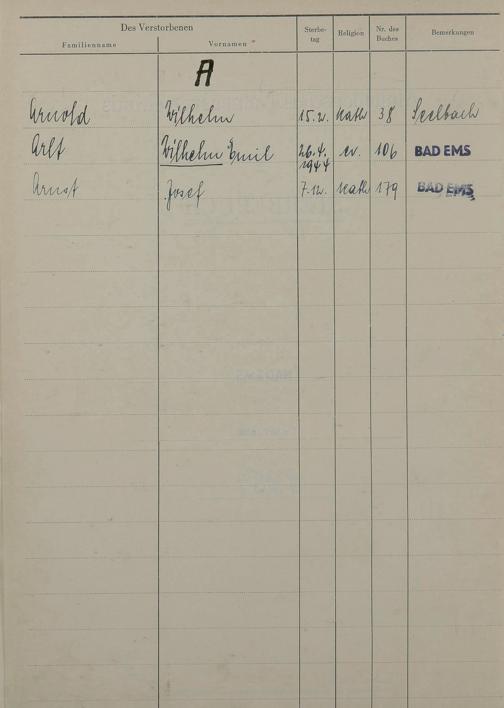 Des Verstorbenen
Familienname Vornamen Sterbe- tag Religion Nr. des Buches Bemerkungen
A
Arnold Wilhelm 15.2. kath 38 Seelbach
Arlt Wilhelm Emil 26.4. 1944 ev. 106 BAD EMS
Arnst Josef 7.12. kath 179 BAD EMS